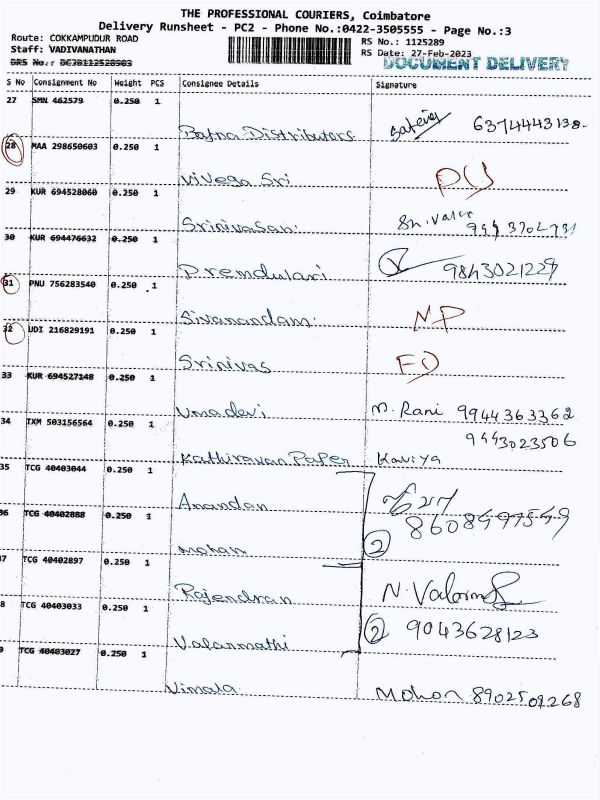 THE PROFESSIONAL COURIERS, Coimbatore
Delivery Runsheet - PC2 - Phone No.:0422-3505555 - Page No.:3
Route: COKKAMPUDUR ROAD
RS No.: 1125289
Staff: VADIVANATHAN
RS Date: 27-Feb-2023
DRS No.: DCJB112528903
DOCUMENT DELIVERY
S No Consignment No Weight PCS Consignee Details Signature
27 SMN 462579 0.250 1
Bafna Distributors 6374443138-
28 MAA 298650603 0.250 1
Vivega Sri
29 KUR 694528060 0.250 1
Srinivasan
30 KUR 694476632 0.250 1
Premdulari 9843021229
31 PNU 756283540 0.250 1
Sivanandam NP
32 UDI 216829191 0.250 1
Srinivas
33 KUR 694527148 0.250 1
Umadevi M. Rani 9944363362
34 IXM 503156564 0.250 1 9443023506
Kathiravan Paper Kaviya
35 TCG 40403044 0.250 1
Anandan
36 TCG 40402888 0.250 1
Mohan 2
7 TCG 40402897 0.250 1
Rajendran
8 TCG 40403033 0.250 1 2 9043628123
Valarmathi
9 TCG 40403027 0.250 1
Vimala Mohan 8902509268